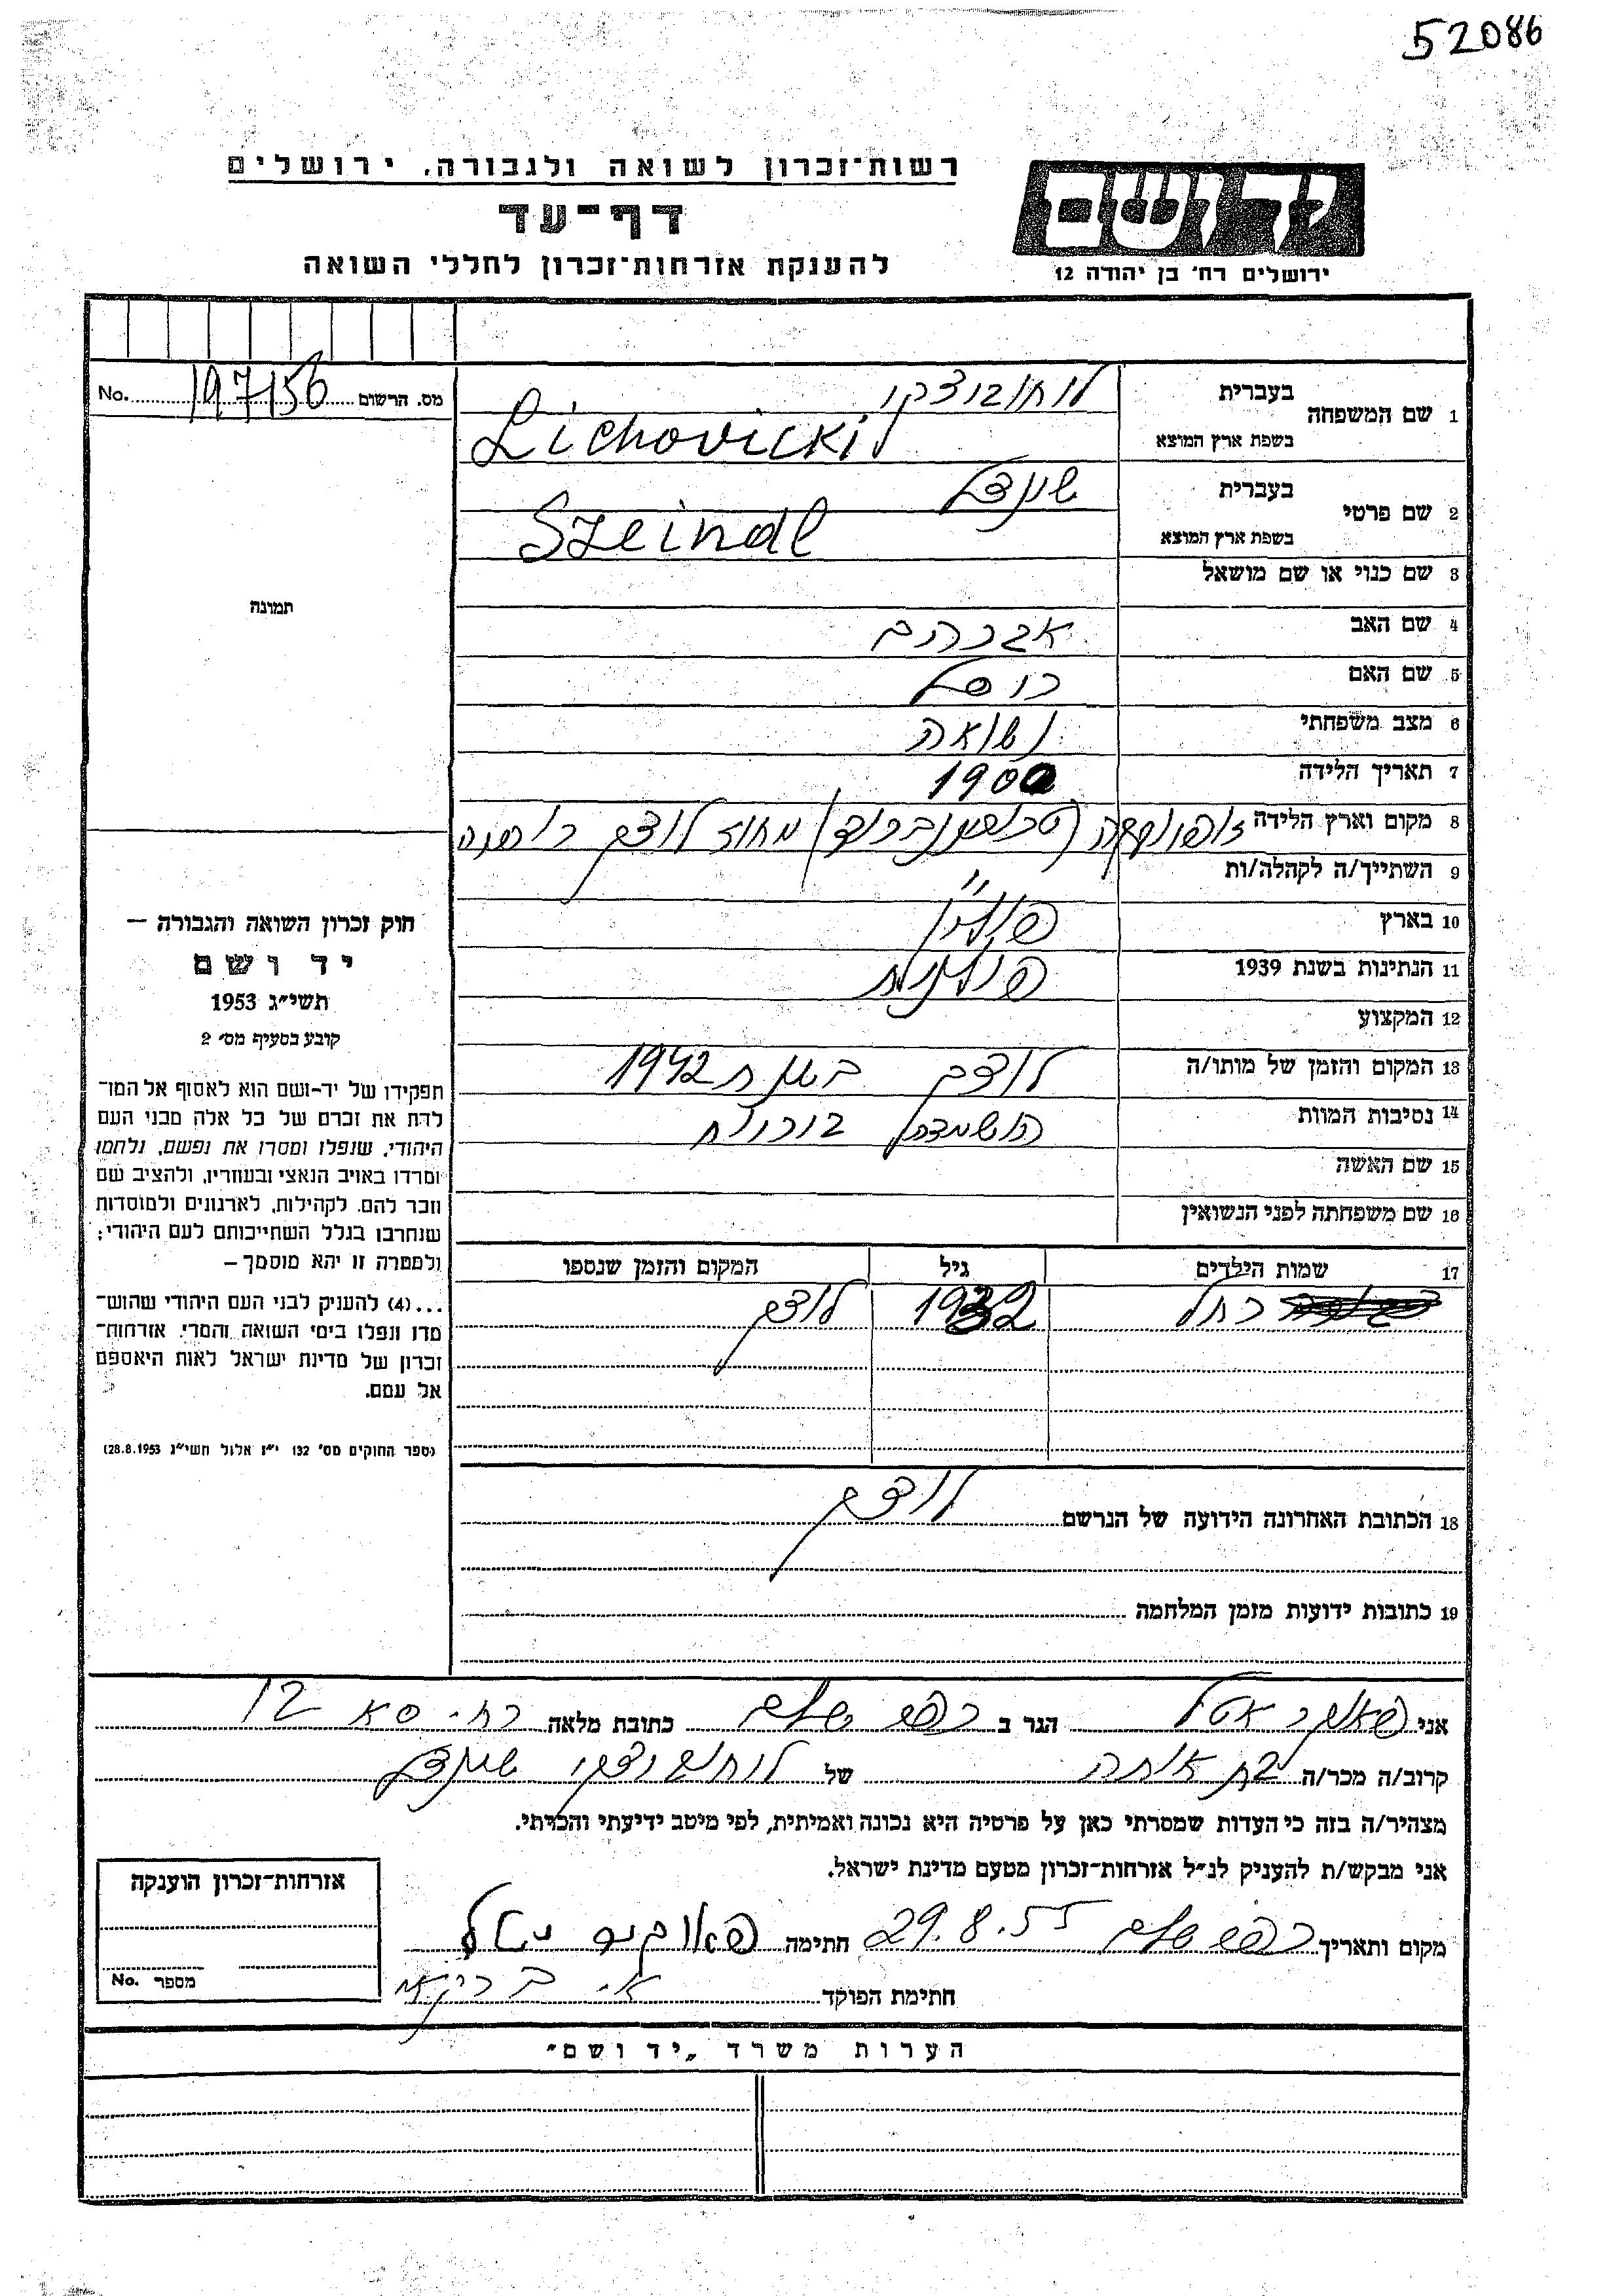 52086
רשות־זכרון לשואה ולגבורה, ירושלים
דף־עד
להענקת אזרחות־זכרון לחללי השואה
יד ושם
ירושלים רח' בן יהודה 12
מס. הרשום 197156 No.
1 שם המשפחה
בעברית
בשפת ארץ המוצא
Lichovicki
2 שם פרטי
בעברית שינדל
בשפת ארץ המוצא Szeindl
3 שם כנוי או שם מושאל
4 שם האב אברהם
5 שם האם
6 מצב משפחתי נשואה
7 תאריך הלידה 1900
8 מקום וארץ הלידה מחוז לודז
9 השתייך/ה לקהלה/ות
10 בארץ פולין
11 הנתינות בשנת 1939 פולנית
12 המקצוע
13 המקום והזמן של מותו/ה לודז בשנת 1942
14 נסיבות המוות
15 שם האשה
16 שם משפחתה לפני הנשואין
17 שמות הילדים גיל המקום והזמן שנספו
רחל 1932 לודז
18 הכתובת האחרונה הידועה של הנרשם לודז
19 כתובות ידועות מזמן המלחמה
תמונה
חוק זכרון השואה והגבורה —
יד ושם
תשי״ג 1953
קובע בסעיף מס' 2
תפקידו של יד-ושם הוא לאסוף אל המו־
לדת את זכרם של כל אלה מבני העם
היהודי, שנפלו ומסרו את נפשם, נלחמו
ומרדו באויב הנאצי ובעוזריו, ולהציב שם
וזכר להם, לקהילות, לארגונים ולמוסדות
שנחרבו בגלל השתייכותם לעם היהודי;
ולמטרה זו יהא מוסמך —
...(4) להעניק לבני העם היהודי שהוש־
מדו ונפלו בימי השואה והמרי, אזרחות־
זכרון של מדינת ישראל לאות היאספם
אל עמם.
(ספר החוקים מס' 132 י״ז אלול תשי״ג 28.8.1953)
אני הגר ב כפר שלם כתובת מלאה 12
קרוב/ה מכר/ה בת אחה של שינדל
מצהיר/ה בזה כי העדות שמסרתי כאן על פרטיה היא נכונה ואמיתית, לפי מיטב ידיעתי והכרתי.
אני מבקש/ת להעניק לנ״ל אזרחות־זכרון מטעם מדינת ישראל.
מקום ותאריך כפר שלם 29.8.55 חתימה
חתימת הפוקד
אזרחות־זכרון הוענקה
מספר No.
הערות משרד „יד ושם״